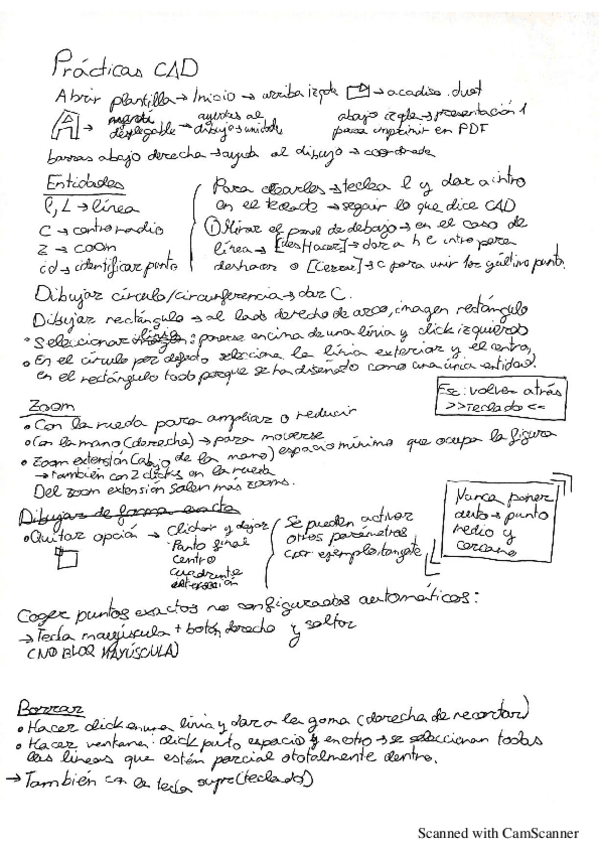 Prácticas CAD
Abrir plantilla → Inicio → arriba izqda → acadiso.dwt
A → menú desplegable → ajustes al dibujo → unidades
abajo izqda → presentación 1 para imprimir en PDF
barras abajo derecha → ayuda al dibujo → coordenada
Entidades
l, L → línea
C → centro radio
Z → zoom
id → identificar punto
Para usarlos → teclea l y dar a intro
en el teclado → seguir lo que dice CAD
① Mirar el panel de debajo → en el caso de
línea → [desHacer] → dar a h e intro para
deshacer o [Cerrar] → c para unir 1er y último punto.
Dibujar círculo/circunferencia → dar C.
Dibujar rectángulo → al lado derecho de arco, imagen rectángulo
• Seleccionar : ponerse encima de una línea y click izquierdo
• En el círculo por defecto selecciona la línea exterior y el centro,
en el rectángulo todo porque se ha diseñado como una única entidad.
Esc: volver atrás
>>Teclado<<
Zoom
• Con la rueda para ampliar o reducir
• Con la mano (derecha) → para moverse
• Zoom extensión (abajo de la mano) espacio mínimo que ocupa la figura
→ También con 2 clicks en la rueda
Del zoom extensión salen más zooms.
Dibujar de forma exacta
• Quitar opción → Clickar y dejar
Punto final
centro
cuadrante
extensión
Se pueden activar
otros parámetros
por ejemplo, tangente
Nunca poner
auto → punto
medio y
cercano
Coger puntos exactos no configurados automáticos:
→ Tecla mayúscula + botón derecho y soltar
(NO BLOQ MAYÚSCULA)
Borrar
• Hacer click en una línea y dar a la goma (derecha de recortar)
• Hacer ventana: click punto espacio y en otro → se seleccionan todas
las líneas que estén parcial o totalmente dentro.
→ También con la tecla supr (teclado)
Scanned with CamScanner